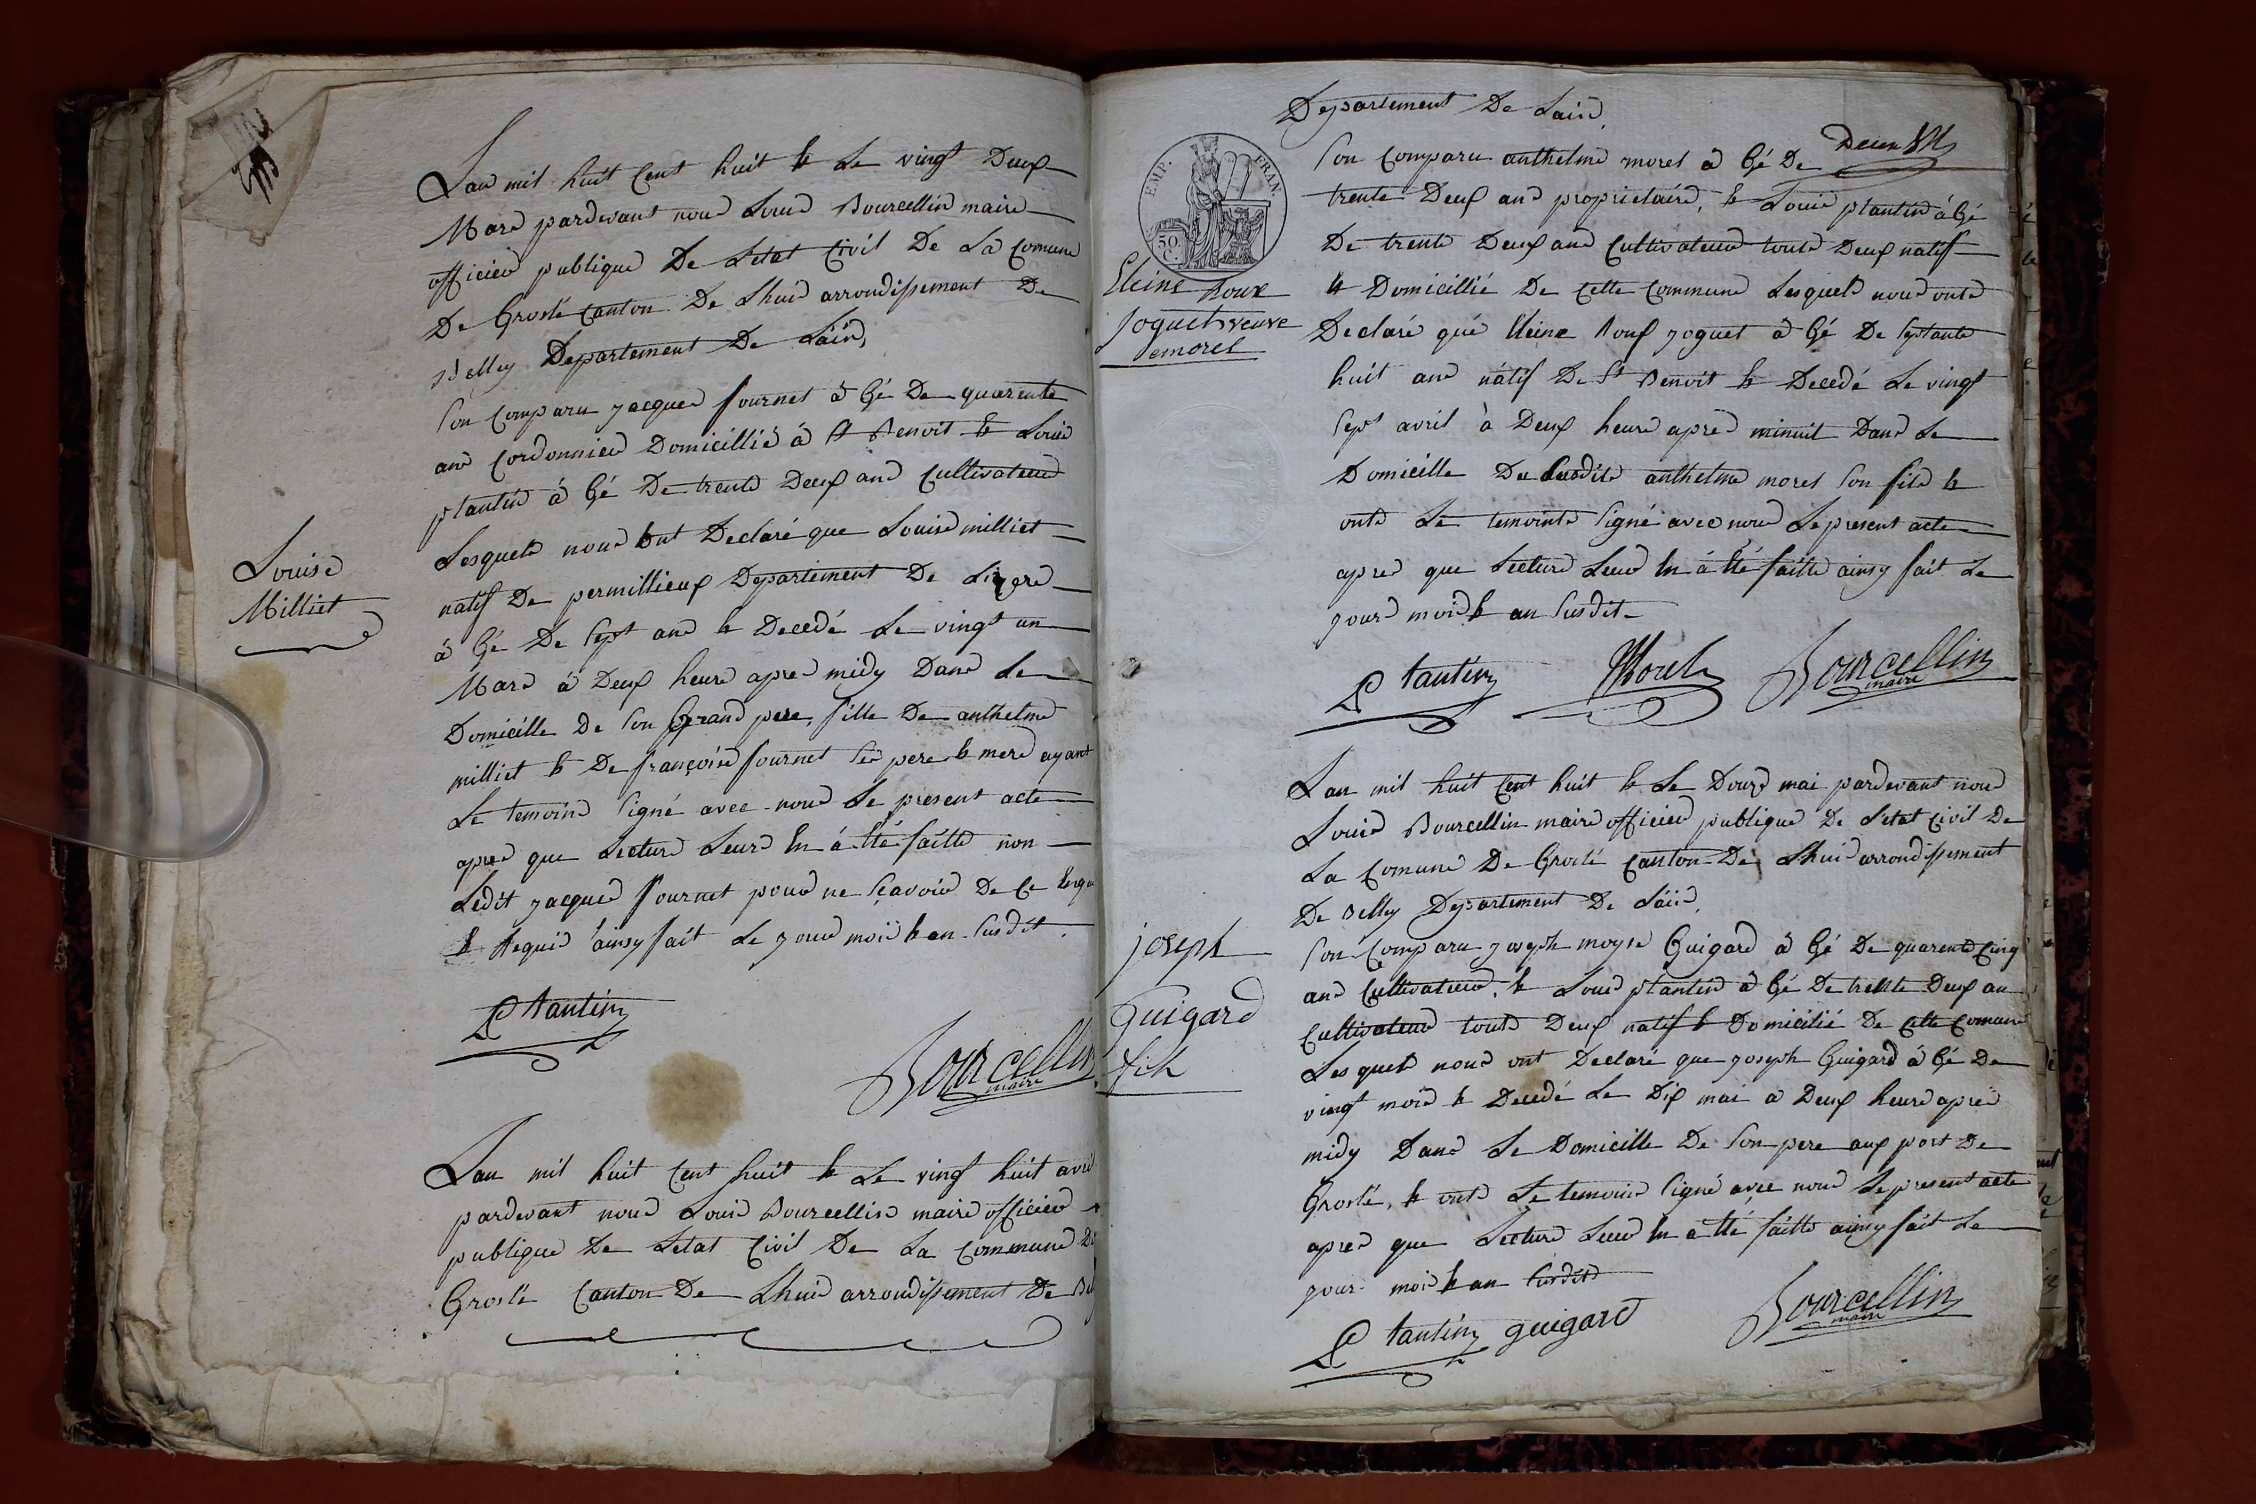 Lan mil huit Cent huit & Le vingt Deux
Mars pardevant nous Louis Bourcellin maire
officier publique De Letat Civil De La Comune
De Groslé Canton De Lhuis arrondissement De
Belley Departement De Lain,
Son Comparu jacques fournet â Gé De quarente
ans Cordonnier Domicillié â St Benoit & Louis
plantin â Gé De trente Deux ans Cultivateurs
Lesquels nous ont Declaré que Louise milliet
natif De permillieux Departement De Lizere
â Gé De Sept ans & Decedé Le vingt un
Mars â Deux heure apres midy Dans Le
Domicille De Son Grand pere, fille De anthelme
milliet & De françoise fournet Ses pere & mere ayant
Le temoins Signé avec nous Le present acte
apres que Lecture Leurs En â Eté faitte non
Ledit jacques fournet pour ne Sçavoir De Ce Enqu
& Requis ainsy fait Le jours mois & an Susdit.
Louise
Milliet
Ptantin
Bourcellin
maire
Lan mil huit Cent huit & Le vingt huit avril
pardevant nous Louis Bourcellin maire officier
publique De Letat Civil De La Commune De
Groslé Canton De Lhuis arrondissement De Bel
Departement De Lain,
EMP. FRAN.
50 C.
Son Comparu anthelme morel â Gé De
trente Deux ans proprietaire, & Louis plantin â Gé
De trente Deux ans Cultivateurs touts Deux natif
& Domicillié De Cette Commune Lesquels nous onts
Declaré que Eleine Roux joguet â Gé De Septante
huit ans natif De St Benoit & Decedé Le vingt
Sept avril â Deux heure apres minuit Dans Le
Domicille Du Susdits anthelme morel Son fils &
onts Le temoints Signé avec nous Le present acte
apres que Lecture Leurs En â Eté faitte ainsy fait Le
jours mois & an Susdit
Eleine Roux
joguet veuve
morel
Ptantin Morel Bourcellin
maire
Lan mil huit Cent huit & Le Douze mai pardevant nous
Louis Bourcellin maire officier publique De Letat Civil De
La Comune De Groslé Canton De Lhuis arrondissement
De Belley Departement De Lain,
Son Comparu joseph moyse Guigard â Gé De quarente Cinq
ans Cultivateurs, & Louis plantin â Gé De trente Deux an
Cultivateurs touts Deux natif & Domicilié De Cette Comune
Lesquels nous ont Declaré que joseph Guigard â Gé De
vingt mois & Decedé Le Dix mai â Deux heure apres
midy Dans Le Domicille De Son pere aux port De
Groslé, & onts Le temoins Signé avec nous Le present acte
apres que Lecture Leurs En â Eté faitte ainsy fait Le
jour mois & an Susdits
joseph
Guigard
fils
Ptantin guigard Bourcellin
maire